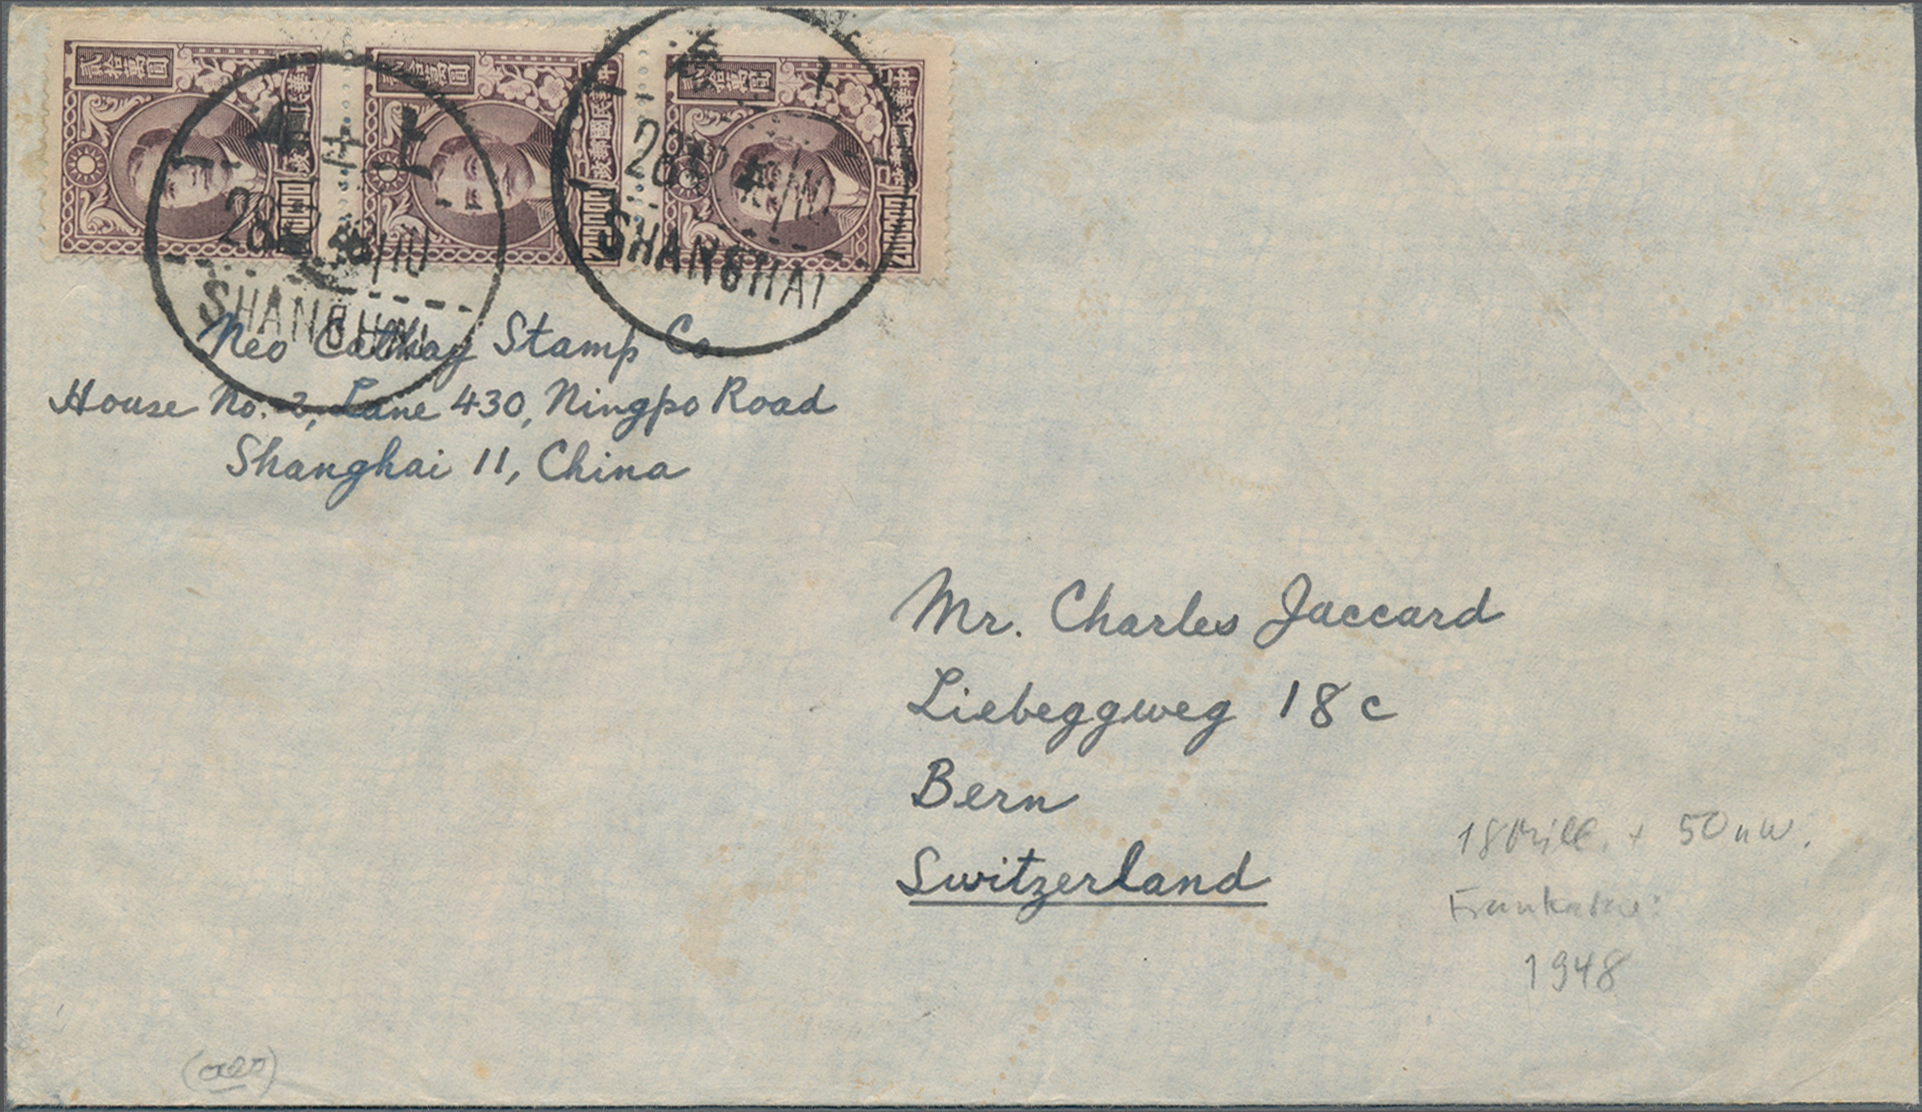 貳拾萬圓
中華民國郵政
200000
貳拾萬圓
中華民國郵政
200000
貳拾萬圓
中華民國郵政
200000
28
SHANGHAI
28
SHANGHAI
Neo Cathay Stamp Co
House No. 2, Lane 430, Ningpo Road
Shanghai 11, China
Mr. Charles Jaccard
Liebeggweg 18c
Bern
Switzerland
18 Mill. + 50
1948